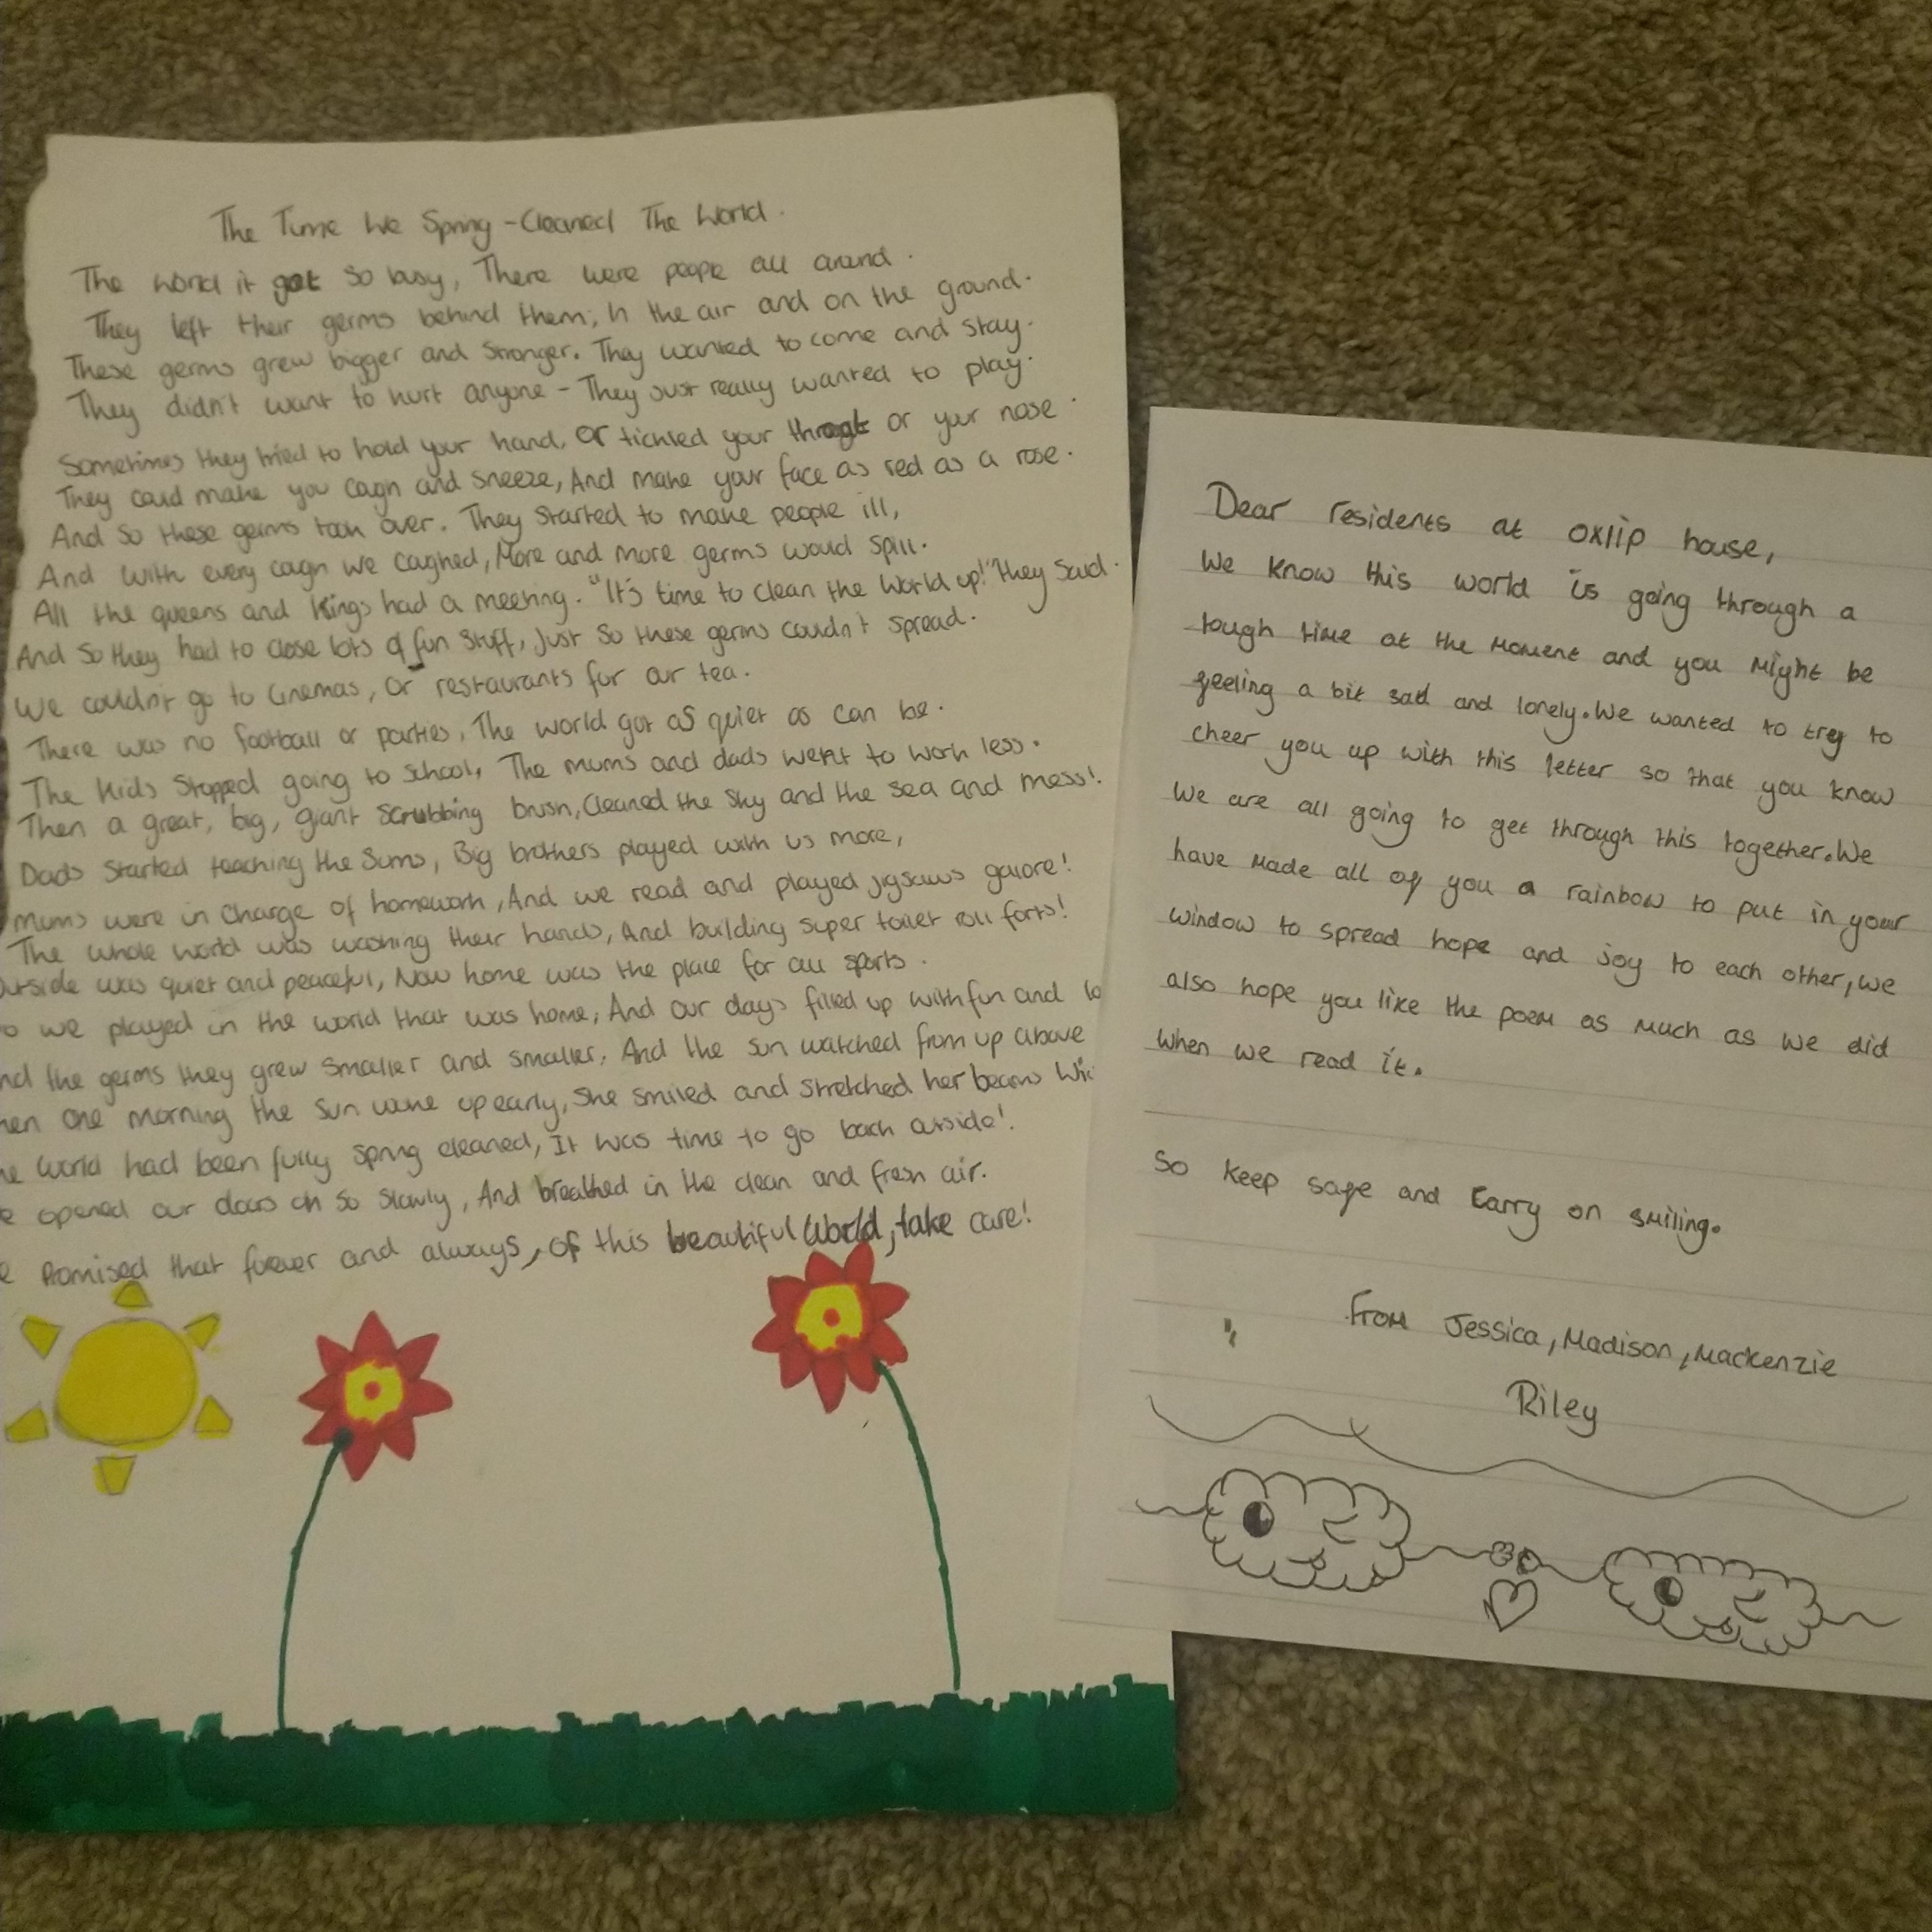 The Time We Spring-Cleaned The World.
The world it got so busy, There were people all around.
They left their germs behind them; In the air and on the ground.
These germs grew bigger and stronger. They wanted to come and stay.
They didn't want to hurt anyone - They just really wanted to play.
Sometimes they tried to hold your hand, or tickled your throat or your nose.
They could make you cough and sneeze, And make your face as red as a rose.
And so these germs took over. They started to make people ill,
And with every cough we coughed, More and more germs would spill.
All the queens and Kings had a meeting. "It's time to clean the World up!" they said.
And so they had to close lots of fun stuff, just so these germs couldn't spread.
We couldn't go to cinemas, or restaurants for our tea.
There was no football or parties, The world got as quiet as can be.
The kids stopped going to school, The mums and dads went to work less.
Then a great, big, giant scrubbing brush, Cleaned the sky and the sea and mess!
Dads started teaching the sums, Big brothers played with us more,
Mums were in charge of homework, And we read and played jigsaws galore!
The whole world was washing their hands, And building super toilet roll forts!
utside was quiet and peaceful, Now home was the place for all sports.
o we played in the world that was home, And our days filled up with fun and lo
nd the germs they grew smaller and smaller, And the sun watched from up above
hen one morning the sun woke up early, she smiled and stretched her beams Wi
he world had been fully spring cleaned, It was time to go back outside!
e opened our doors oh so slowly, And breathed in the clean and fresh air.
e Promised that forever and always, of this beautiful World, take care!
Dear residents at oxlip house,
We know this world is going through a
tough time at the moment and you might be
feeling a bit sad and lonely. We wanted to try to
cheer you up with this letter so that you know
We are all going to get through this together. We
have made all of you a rainbow to put in your
window to spread hope and joy to each other, we
also hope you like the poem as much as we did
when we read it.
So keep safe and Carry on smiling.
From Jessica, Madison, Mackenzie
Riley